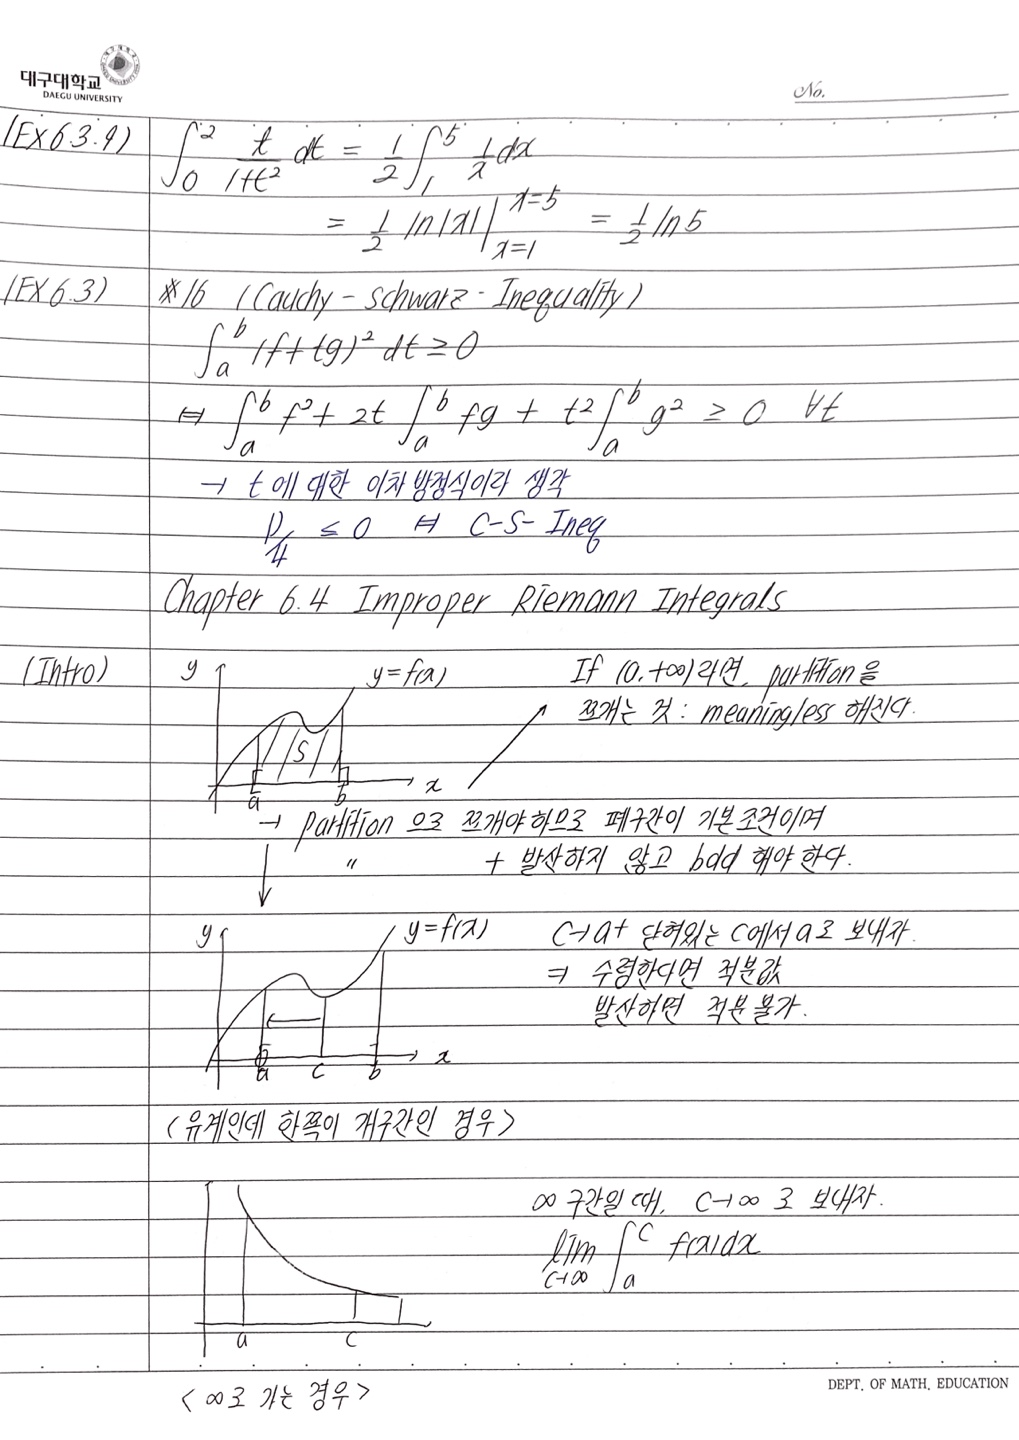 대구대학교
DAEGU UNIVERSITY
No.
(EX 6.3.9) ∫_0^2 t/(1+t²) dt = 1/2 ∫_1^5 1/x dx
= 1/2 ln|x| |_{x=1}^{x=5} = 1/2 ln 5
(EX 6.3) #16 (Cauchy - Schwarz - Inequality)
∫_a^b (f+tg)² dt ≥ 0
⇔ ∫_a^b f² + 2t ∫_a^b fg + t² ∫_a^b g² ≥ 0 ∀t
→ t에 대한 이차방정식이라 생각
D/4 ≤ 0 ⇔ C-S- Ineq
Chapter 6.4 Improper Riemann Integrals
(Intro)
y
y=f(x)
S
a b x
If (0, +∞)라면, partition을
쪼개는 것 : meaningless 해진다.
→ partition 으로 쪼개야하므로 폐구간이 기본조건이며
〃 + 발산하지 않고 bdd 해야 한다.
y
y=f(x)
a c b x
C→a+ 닫혀있는 c에서 a로 보내자.
⇒ 수렴한다면 적분값
발산하면 적분불가.
<유계인데 한쪽이 개구간인 경우>
a c
∞ 구간일 때, C→∞ 로 보내자.
lim_{C→∞} ∫_a^C f(x)dx
<∞로 가는 경우>
DEPT. OF MATH. EDUCATION